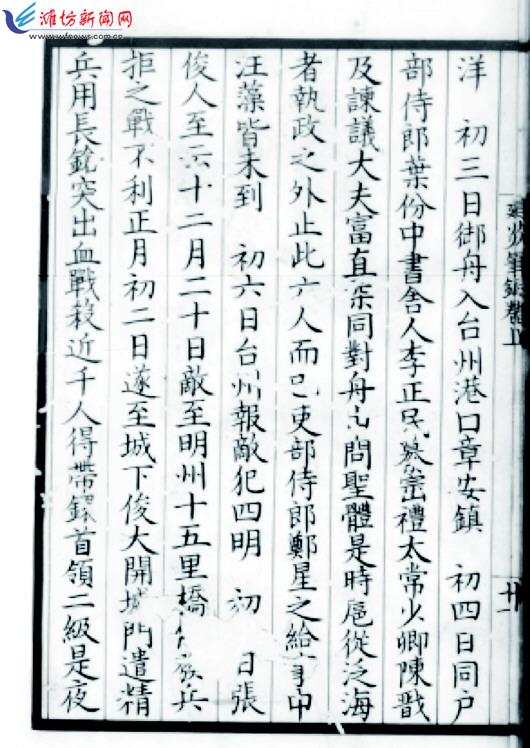 潍坊新闻网
www.wfnews.com.cn
洋　初三日御舟入台州港口章安鎮　初四日同戶
部侍郎葉份中書舍人李正民綦崈禮太常少卿陳戩
及諫議大夫富直柔同對舟中問聖體是時扈從泛海
者執政之外止此六人而已吏部侍郎鄭望之給事中
汪藻皆未到　初六日台州報敵犯四明　初　日張
俊人至云十二月二十日敵至明州十五里橋　兵
拒之戰不利正月初二日遂至城下俊大開城門遣精
兵用長鎗突出血戰殺近千人得帶鐶首領二級是夜
建炎筆錄卷上
廿一